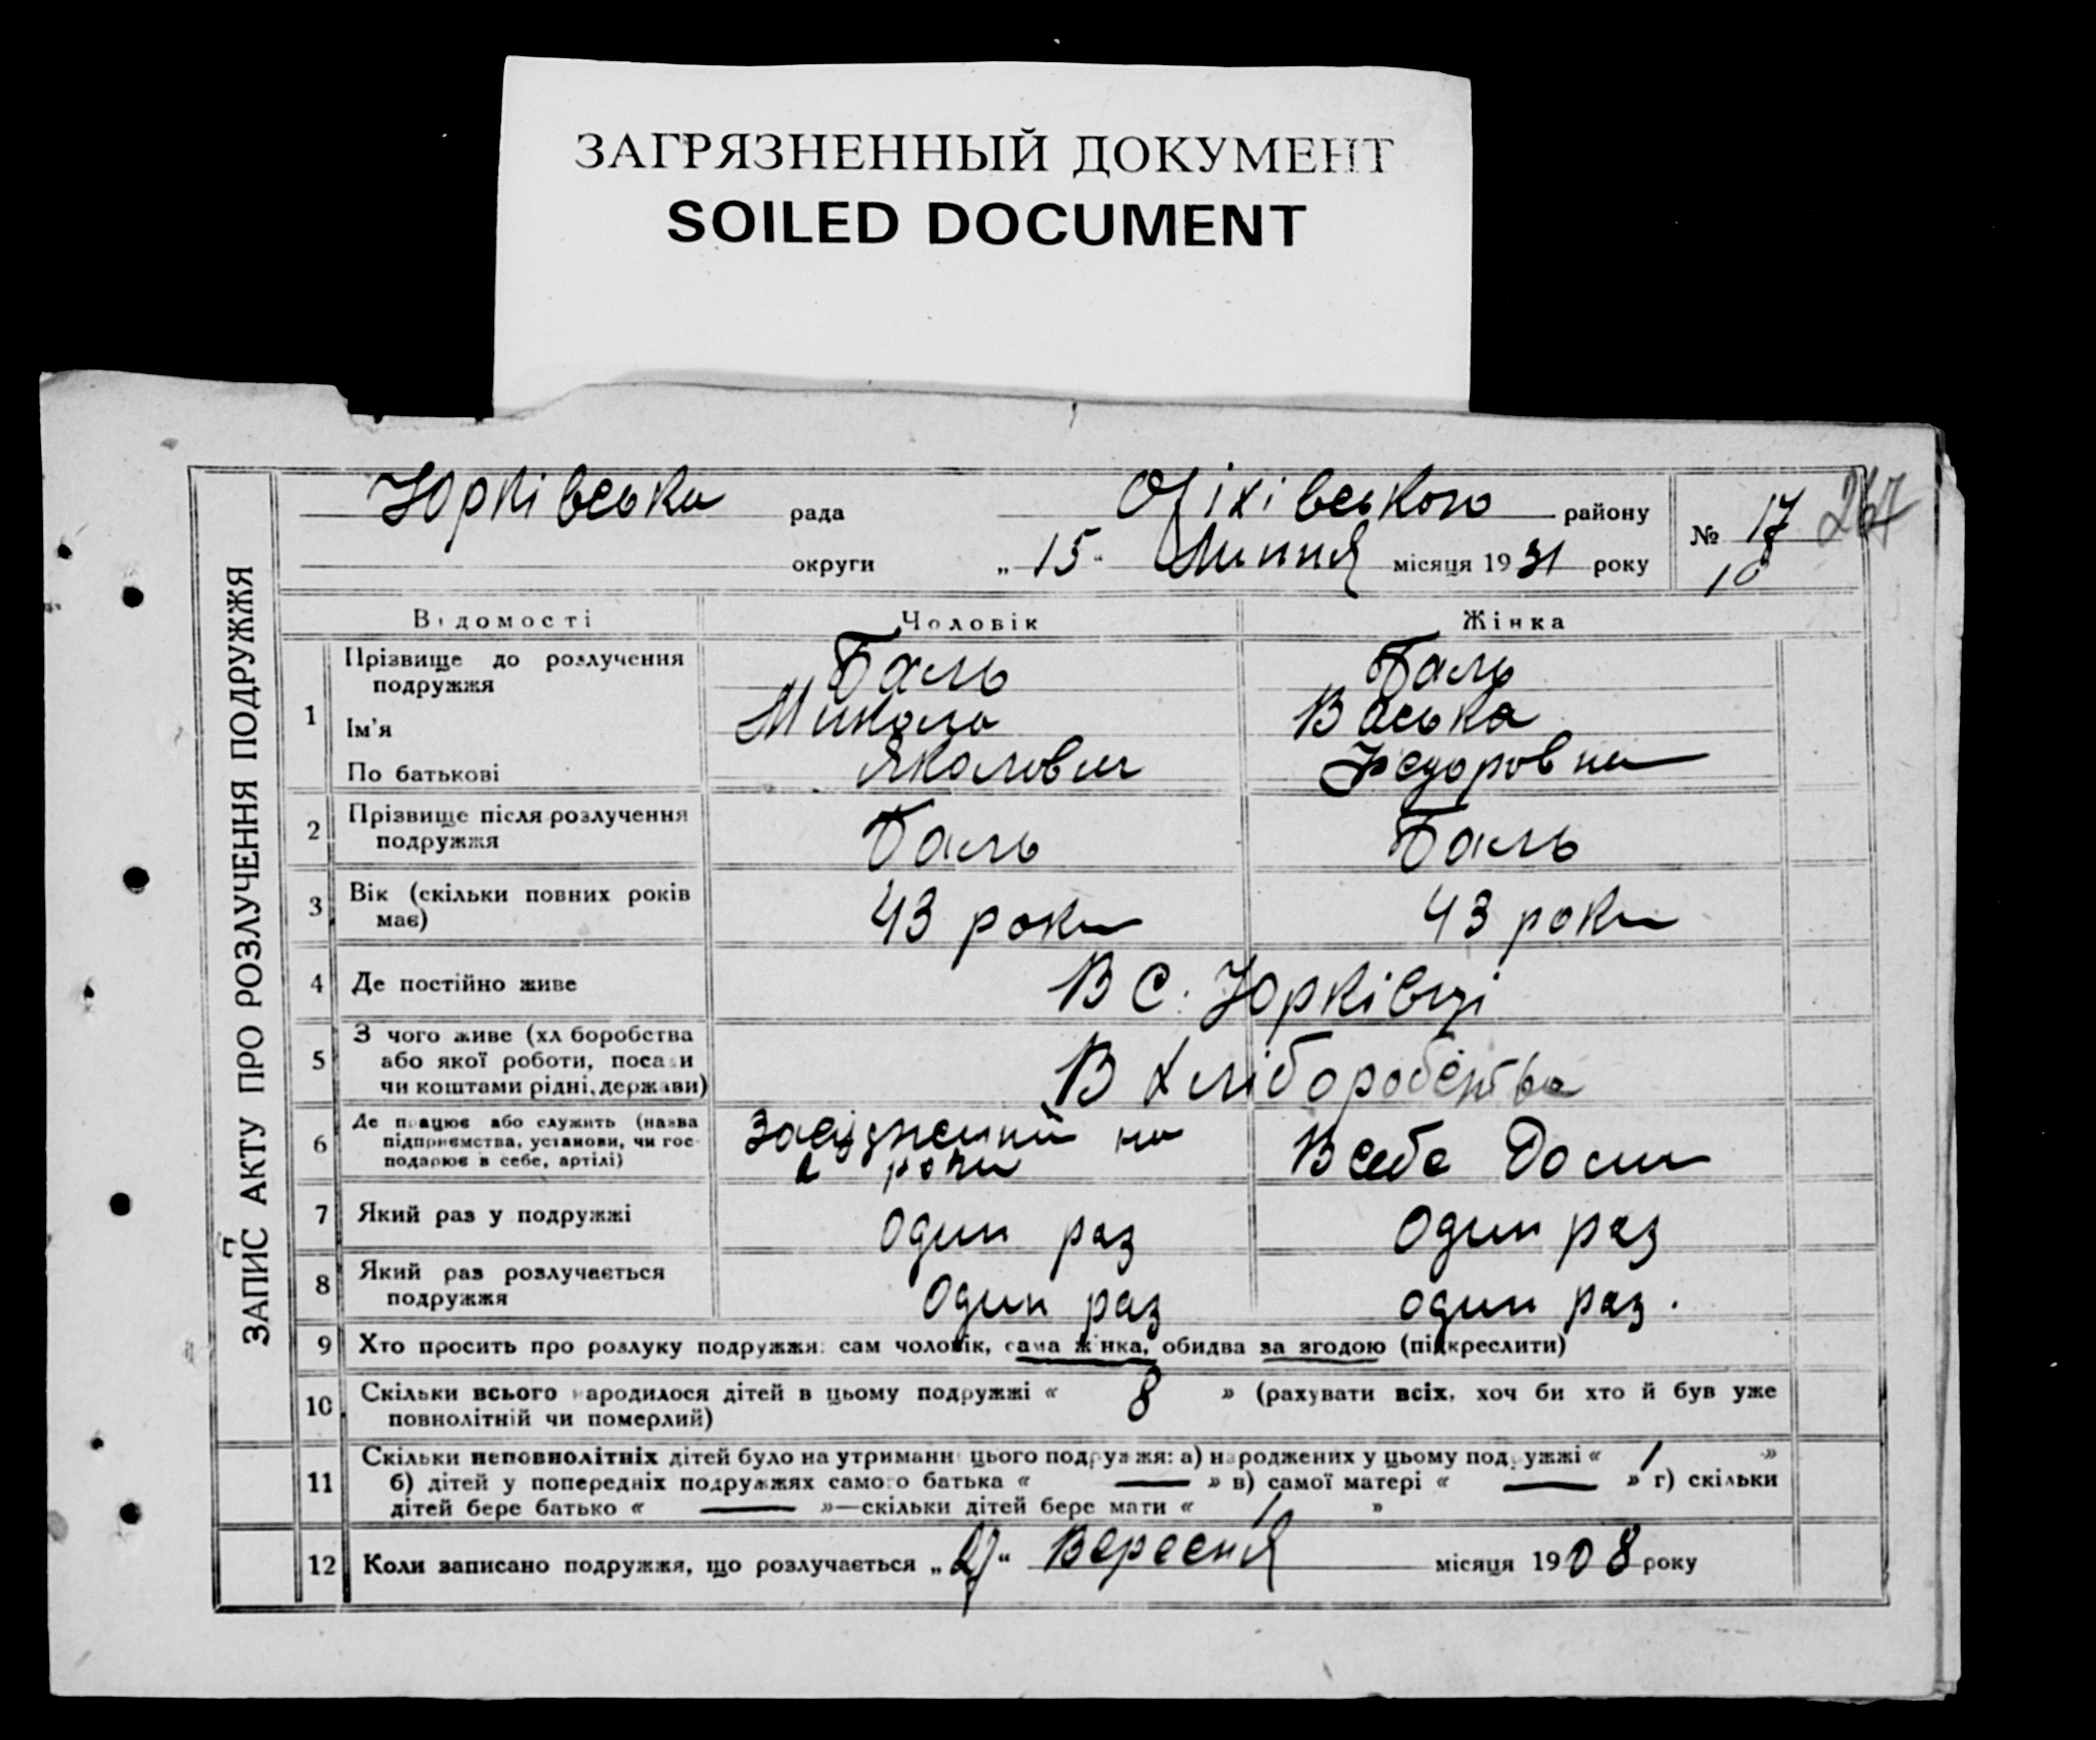 ЗАГРЯЗНЕННЫЙ ДОКУМЕНТ
SOILED DOCUMENT
ЗАПИС АКТУ ПРО РОЗЛУЧЕННЯ ПОДРУЖЖЯ
Юрківська рада Оріхівського району № 17 267
округи „15“ Липня місяця 1931 року 18
Відомості Чоловік Жінка
1 Прізвище до розлучення подружжя Баль Баль
Ім'я Микола Васька
По батькові Федоровна
2 Прізвище після розлучення подружжя Баль Баль
3 Вік (скільки повних років має) 43 роки 43 роки
4 Де постійно живе В с. Юрківці
5 З чого живе (хліборобства або якої роботи, посади чи коштами рідні, держави) В хліборобства
6 Де працює або служить (назва підприємства, установи, чи господарює в себе, артілі) Засуджений на 2 роки В себе Дома
7 Який раз у подружжі один раз один раз
8 Який раз розлучається подружжя один раз один раз.
9 Хто просить про розлуку подружжя: сам чоловік, сама жінка, обидва за згодою (підкреслити)
10 Скільки всього народилося дітей в цьому подружжі « 8 » (рахувати всіх, хоч би хто й був уже
повнолітній чи померлий)
11 Скільки неповнолітніх дітей було на утриманні цього подружжя: а) народжених у цьому подружжі « 1 »
б) дітей у попередніх подружжях самого батька « — » в) самої матері « — » г) скільки
дітей бере батько « — »—скільки дітей бере мати « 1 »
12 Коли записано подружжя, що розлучається „27“ Вересня місяця 1908 року